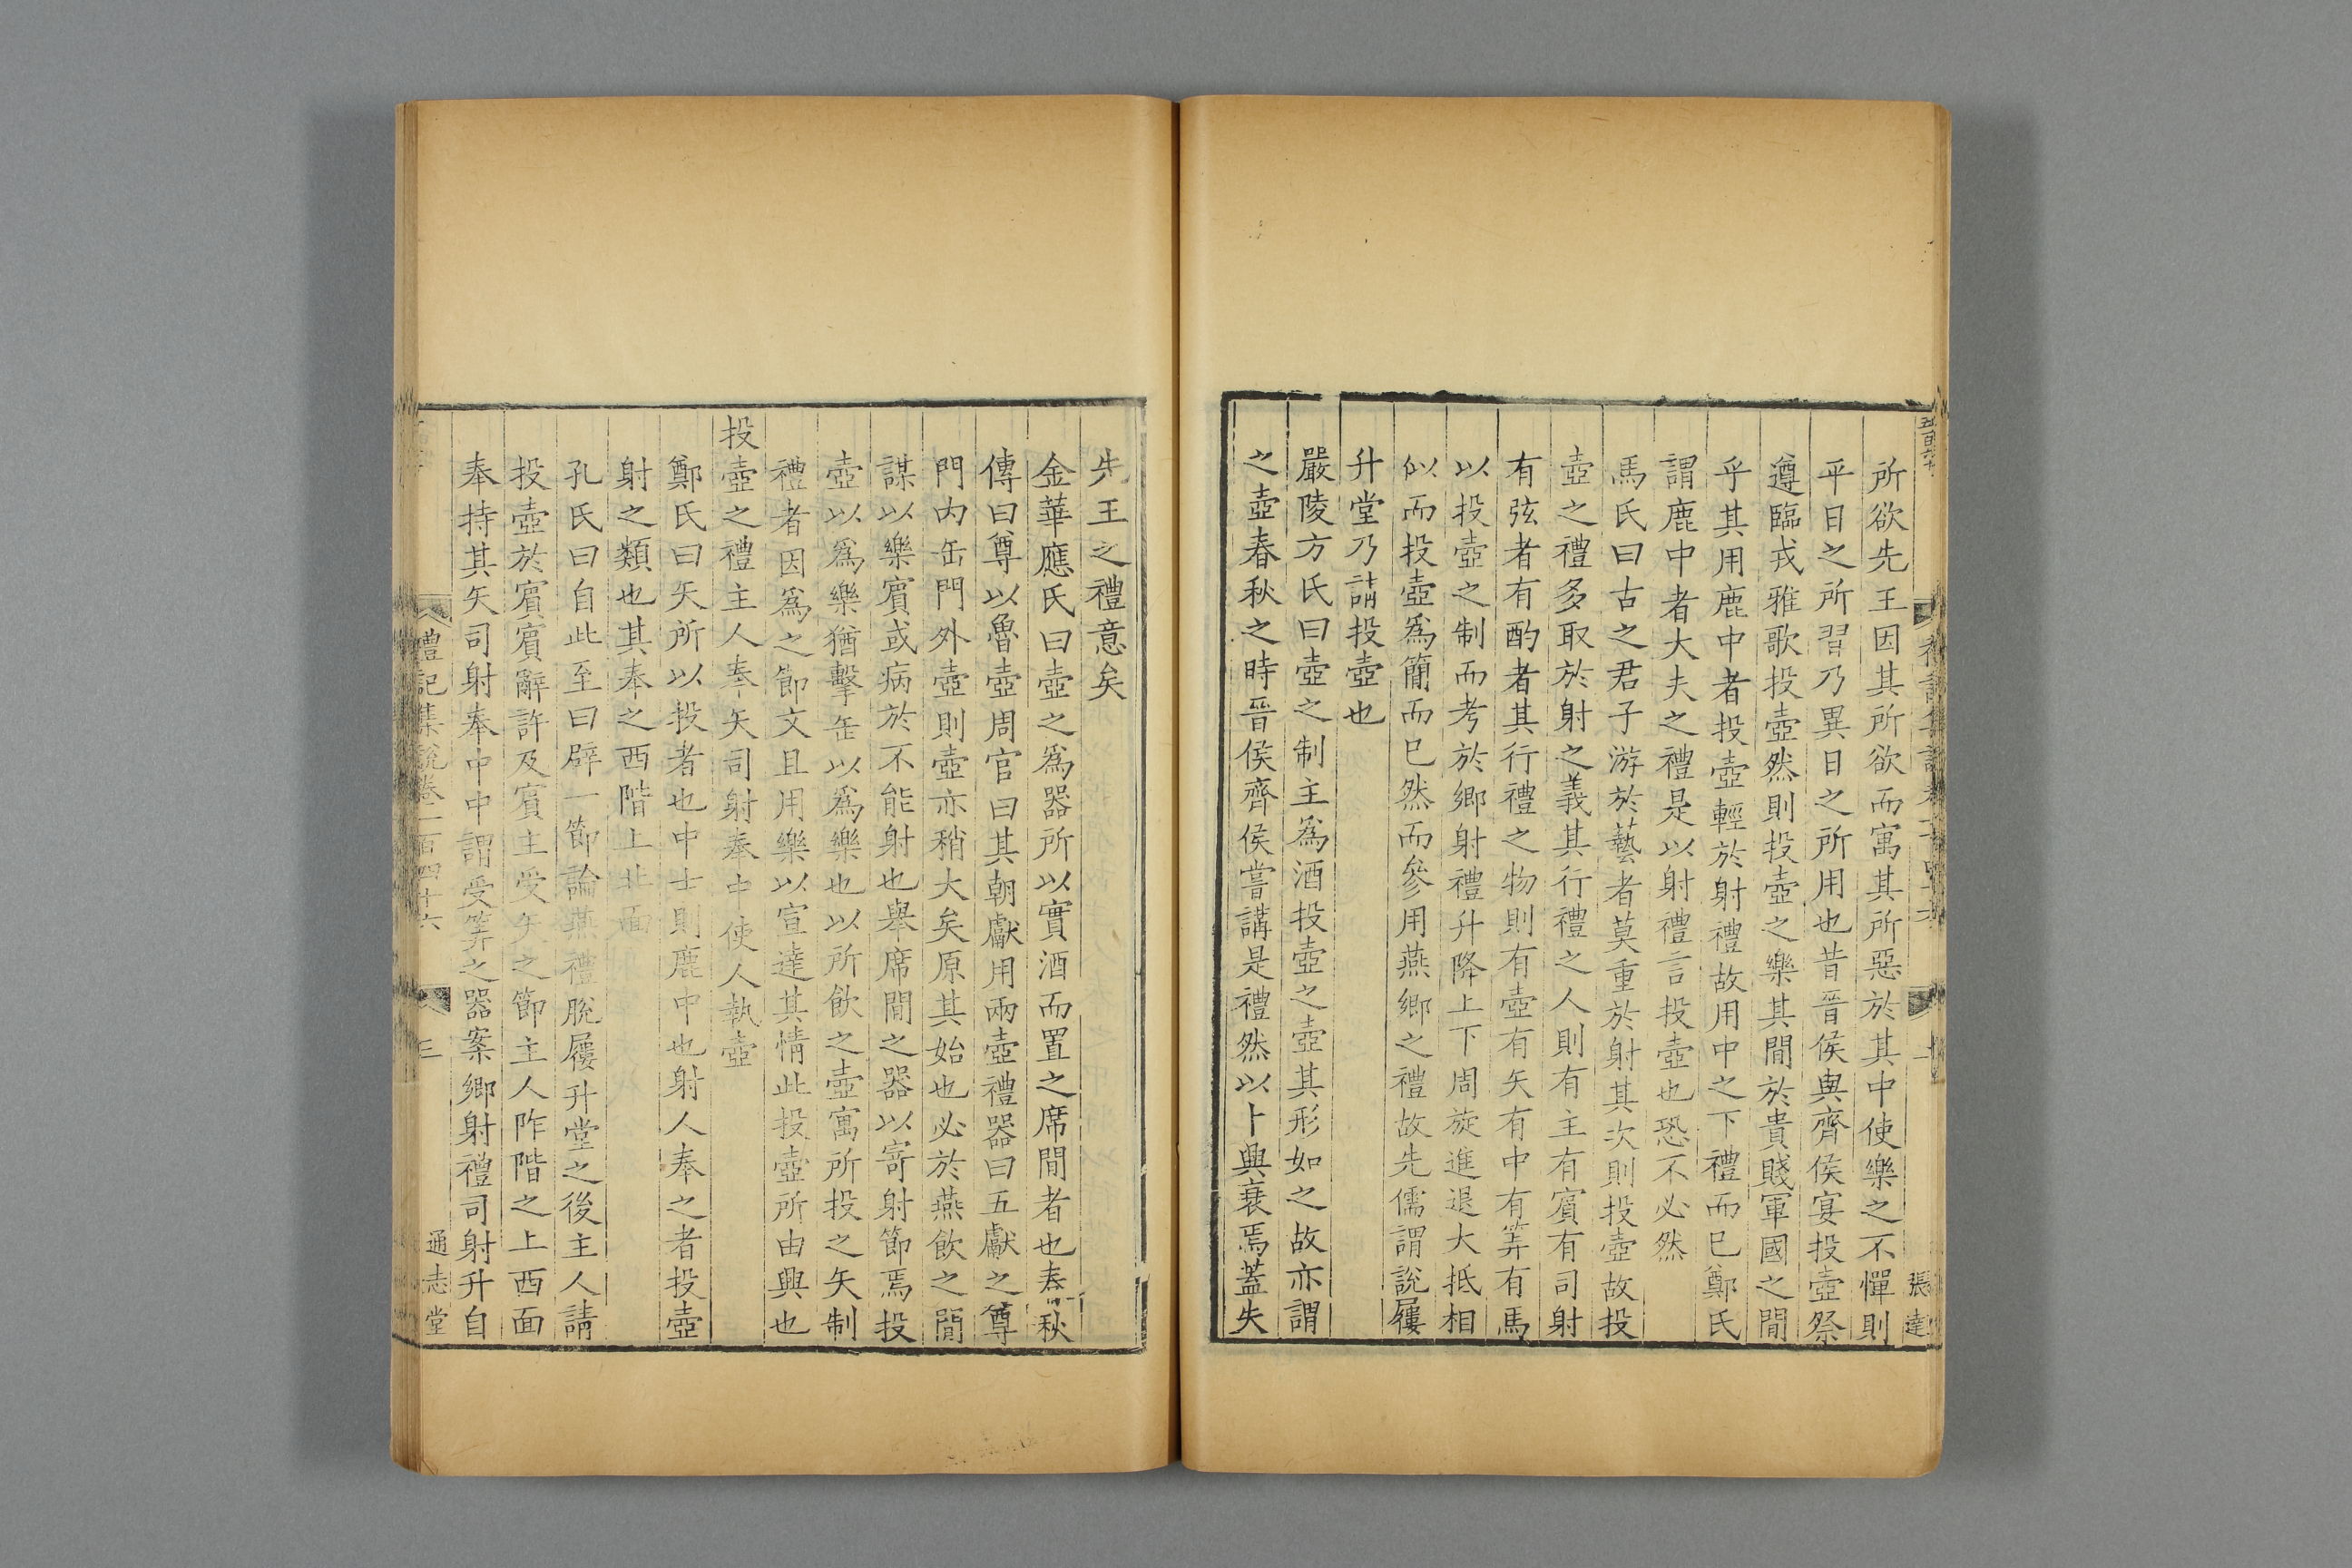 所欲先王因其所欲而寓其所惡於其中使樂之不憚則
平日之所習乃異日之所用也昔晉侯與齊侯宴投壺祭
遵臨戎雅歌投壺然則投壺之樂其閒於貴賤軍國之閒
乎其用鹿中者投壺輕於射禮故用中之下禮而已鄭氏
謂鹿中者大夫之禮是以射禮言投壺也恐不必然
馬氏曰古之君子游於藝者莫重於射其次則投壺故投
壺之禮多取於射之義其行禮之人則有主有賓有司射
有弦者有酌者其行禮之物則有壺有矢有中有筭有馬
以投壺之制而考於鄉射禮升降上下周旋進退大抵相
似而投壺爲簡而已然而參用燕鄉之禮故先儒謂說屨
升堂乃請投壺也
嚴陵方氏曰壺之制主爲酒投壺之壺其形如之故亦謂
之壺春秋之時晉侯齊侯嘗講是禮然以卜興衰焉蓋失
張達
先王之禮意矣
金華應氏曰壺之爲器所以實酒而置之席閒者也春秋
傳曰尊以魯壺周官曰其朝獻用兩壺禮器曰五獻之尊
門內缶門外壺則壺亦稍大矣原其始也必於燕飲之閒
謀以樂賓或病於不能射也舉席閒之器以寄射節焉投
壺以爲樂猶擊缶以爲樂也以所飲之壺寓所投之矢制
禮者因爲之節文且用樂以宣達其情此投壺所由興也
投壺之禮主人奉矢司射奉中使人執壺
鄭氏曰矢所以投者也中士則鹿中也射人奉之者投壺
射之類也其奉之西階上北面
孔氏曰自此至曰辟一節論燕禮脫屨升堂之後主人請
投壺於賓賓辭許及賓主受矢之節主人阼階之上西面
奉持其矢司射奉中中謂受筭之器案鄉射禮司射升自
禮記集說卷一百四十六
三
通志堂